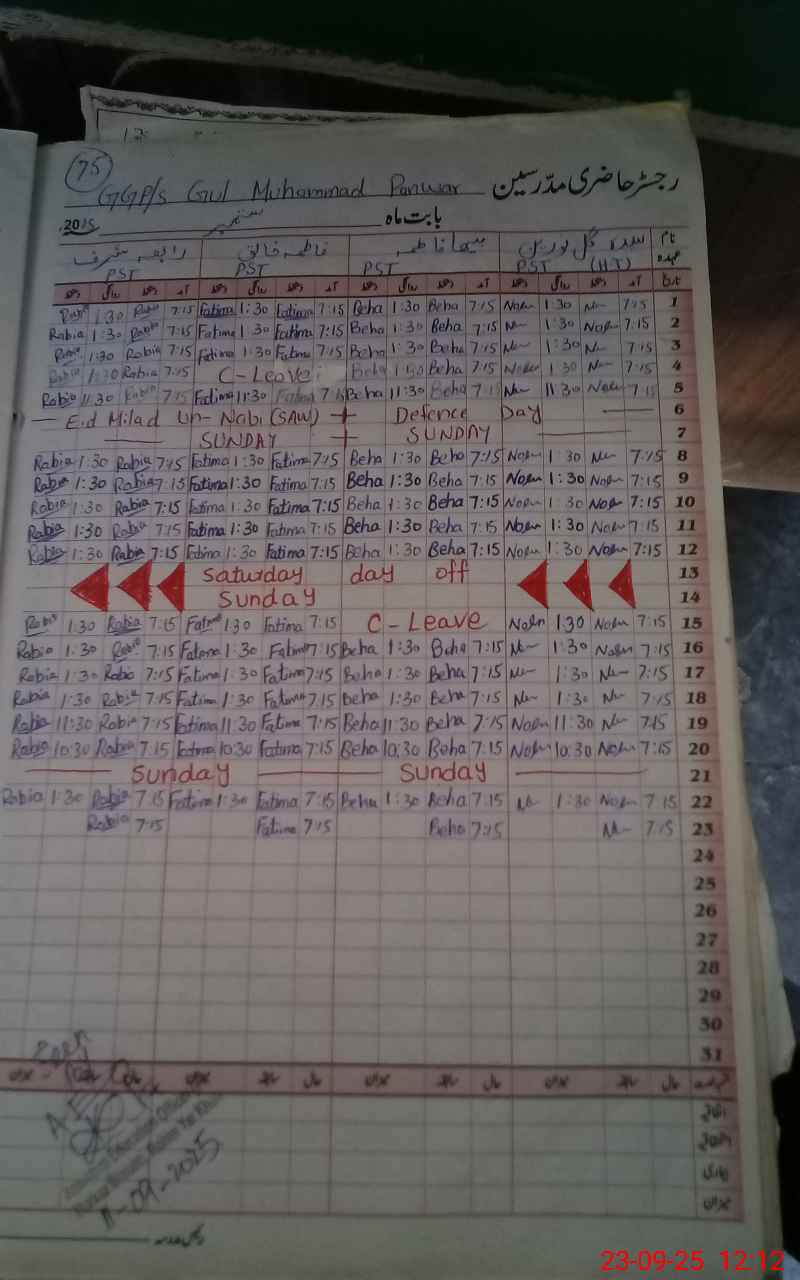 75
GGP/s Gul Muhammad Panwar رجسٹر حاضری مدرّسین
بابت ماہ ستمبر 201
نام سدہ گل نورین بیہا فاطمہ فاطمہ خالق رابعہ شرف
عہدہ PST (HT) PST PST PST
تاریخ آمد دستخط روانگی دستخط آمد دستخط روانگی دستخط آمد دستخط روانگی دستخط آمد دستخط روانگی دستخط
Rabia 1:30 Rabia 7:15 Fatima 1:30 Fatima 7:15 Beha 1:30 Beha 7:15 Noren 1:30 7:15 1
Rabia 1:30 Rabia 7:15 Fatima 1:30 Fatima 7:15 Beha 1:30 Beha 7:15 1:30 Noren 7:15 2
Rabia 1:30 Rabia 7:15 Fatima 1:30 Fatima 7:15 Beha 1:30 Beha 7:15 1:30 7:15 3
Rabia 1:30 Rabia 7:15 C-Leave Beha 1:30 Beha 7:15 Noren 1:30 7:15 4
Rabia 11:30 Rabia 7:15 Fatima 11:30 Fatima 7:15 Beha 11:30 Beha 7:15 11:30 Noren 7:15 5
Eid Milad Un-Nabi (SAW) + Defence Day 6
SUNDAY + SUNDAY 7
Rabia 1:30 Rabia 7:15 Fatima 1:30 Fatima 7:15 Beha 1:30 Beha 7:15 Noren 1:30 7:15 8
Rabia 1:30 Rabia 7:15 Fatima 1:30 Fatima 7:15 Beha 1:30 Beha 7:15 Noren 1:30 Noren 7:15 9
Rabia 1:30 Rabia 7:15 Fatima 1:30 Fatima 7:15 Beha 1:30 Beha 7:15 Noren 1:30 Noren 7:15 10
Rabia 1:30 Rabia 7:15 Fatima 1:30 Fatima 7:15 Beha 1:30 Beha 7:15 Noren 1:30 Noren 7:15 11
Rabia 1:30 Rabia 7:15 Fatima 1:30 Fatima 7:15 Beha 1:30 Beha 7:15 Noren 1:30 Noren 7:15 12
Saturday day off 13
Sunday 14
Rabia 1:30 Rabia 7:15 Fatima 1:30 Fatima 7:15 C-Leave Noren 1:30 Noren 7:15 15
Rabia 1:30 Rabia 7:15 Fatima 1:30 Fatima 7:15 Beha 1:30 Beha 7:15 1:30 Noren 7:15 16
Rabia 1:30 Rabia 7:15 Fatima 1:30 Fatima 7:15 Beha 1:30 Beha 7:15 1:30 7:15 17
Rabia 1:30 Rabia 7:15 Fatima 1:30 Fatima 7:15 Beha 1:30 Beha 7:15 1:30 7:15 18
Rabia 11:30 Rabia 7:15 Fatima 11:30 Fatima 7:15 Beha 11:30 Beha 7:15 Noren 11:30 7:15 19
Rabia 10:30 Rabia 7:15 Fatima 10:30 Fatima 7:15 Beha 10:30 Beha 7:15 Noren 10:30 Noren 7:15 20
Sunday Sunday 21
Rabia 1:30 Rabia 7:15 Fatima 1:30 Fatima 7:15 Beha 1:30 Beha 7:15 1:30 Noren 7:15 22
Rabia 7:15 Fatima 7:15 Beha 7:15 7:15 23
24
25
26
27
28
29
30
31
میزان سابقہ حال میزان سابقہ حال میزان سابقہ حال میزان سابقہ حال
اتفاقیہ
بیماری
میزان
Seen
Education Officer
11-09-2025
23-09-25 12:12